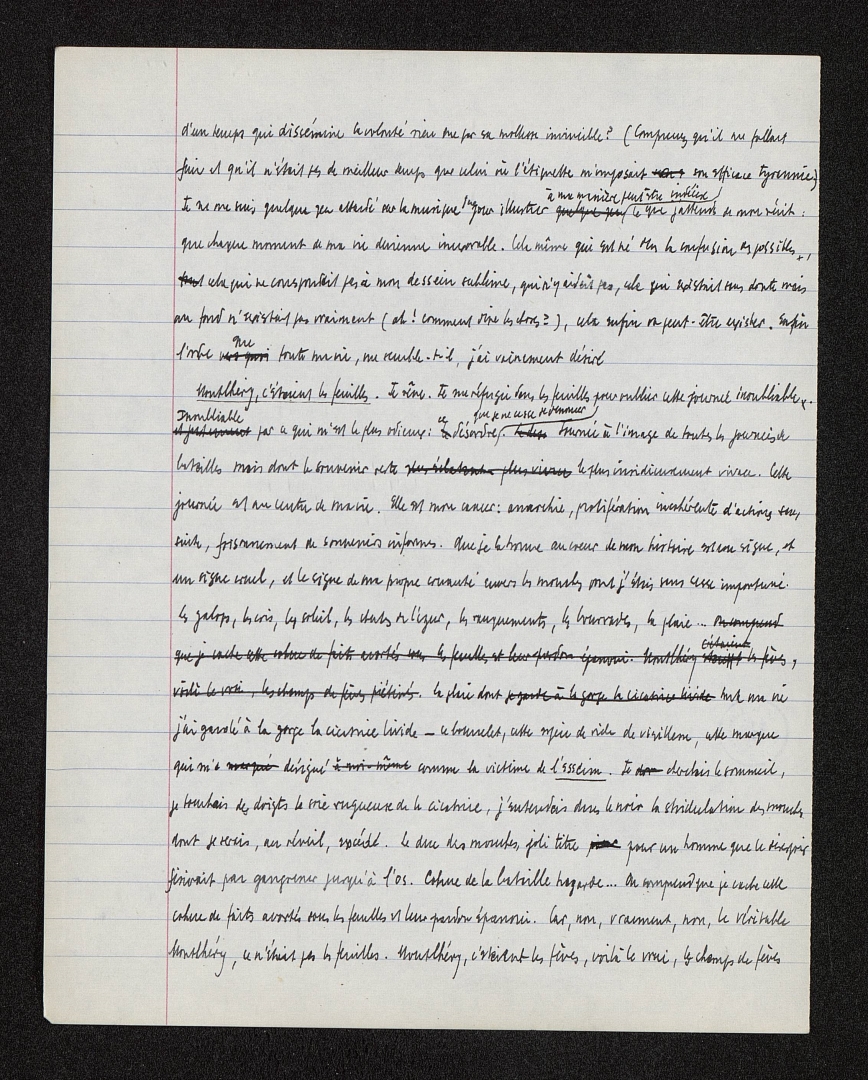 d'un temps qui dissémine la volonté rien que par sa mollesse invincible ? (Comprenez qu'il me fallait
fuir et qu'il n'était pas de meilleur temps que celui où l'étiquette m'imposait son efficace tyrannie)
Je ne me suis quelque peu attardé sur la musique que pour illustrer à ma manière peut-être indécise ce que j'attends de mon récit :
que chaque moment de ma vie devienne mémorable. Cela même qui est né dans la confusion des possibles,
tout cela qui ne correspondait pas à mon dessein sublime, qui n'y aidait pas, cela qui existait sans doute mais
au fond n'existait pas vraiment (ah ! comment dire les choses ?), cela enfin va peut-être exister. Enfin
l'ordre que toute ma vie, me semble-t-il, j'ai vainement désiré
Montlhéry, c'étaient les feuilles. Je rêve. Je me réfugie dans les feuilles pour oublier cette journée inoubliable.
Inoubliable par ce qui m'est le plus odieux : ce désordre que je ne cesse de ruminer. Journée à l'image de toutes les journées de
batailles mais dont le souvenir reste plus éclatant plus vivace le plus insidieusement vivace. Cette
journée est au centre de ma vie. Elle est mon cancer : anarchie, prolifération incohérente d'actions sans
suite, foisonnement de souvenirs informes. Que je la trouve au cœur de mon histoire est un signe, et
un signe cruel, et le signe de ma propre cruauté envers les mouches dont j'étais sans cesse importuné.
Les galops, les cris, le soleil, les éclats de l'épée, les craquements, les bourrades, la plaie... On comprend
que je cache cette cohue de faits avortés sous les feuilles et leur pardon épanoui. Montlhéry c'étaient les fèves,
voilà le vrai, les champs de fèves piétinés. La plaie dont je garde à la gorge la cicatrice livide toute ma vie
j'ai gardé à la gorge la cicatrice livide — ce bourrelet, cette espèce de ride de vieillesse, cette marque
qui m'a marqué désigné à moi-même comme la victime de l'essaim. Je cherchais le sommeil,
je touchais des doigts la soie rugueuse de la cicatrice, j'entendais dans le noir la stridulation des mouches
dont je serais, au réveil, excédé. Le duc des mouches, joli titre pour un homme que le désespoir
finirait par gangrener jusqu'à l'os. Cohue de la bataille hagarde... On comprend que je cache cette
cohue de faits avortés sous les feuilles et leur pardon épanoui. Car, non, vraiment, non, le véritable
Montlhéry, ce n'était pas les feuilles. Montlhéry, c'étaient les fèves, voilà le vrai, les champs de fèves